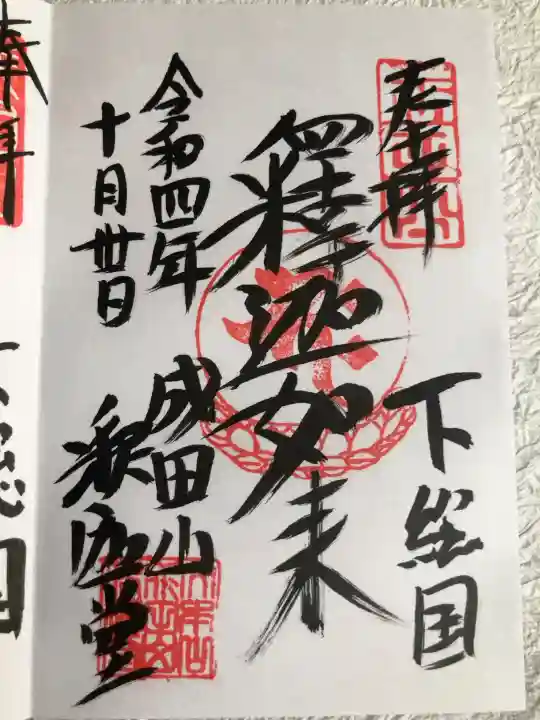 奉拝
下総国
釋迦如来
令和四年
十月卅日
成田山
釈迦堂
奉拝